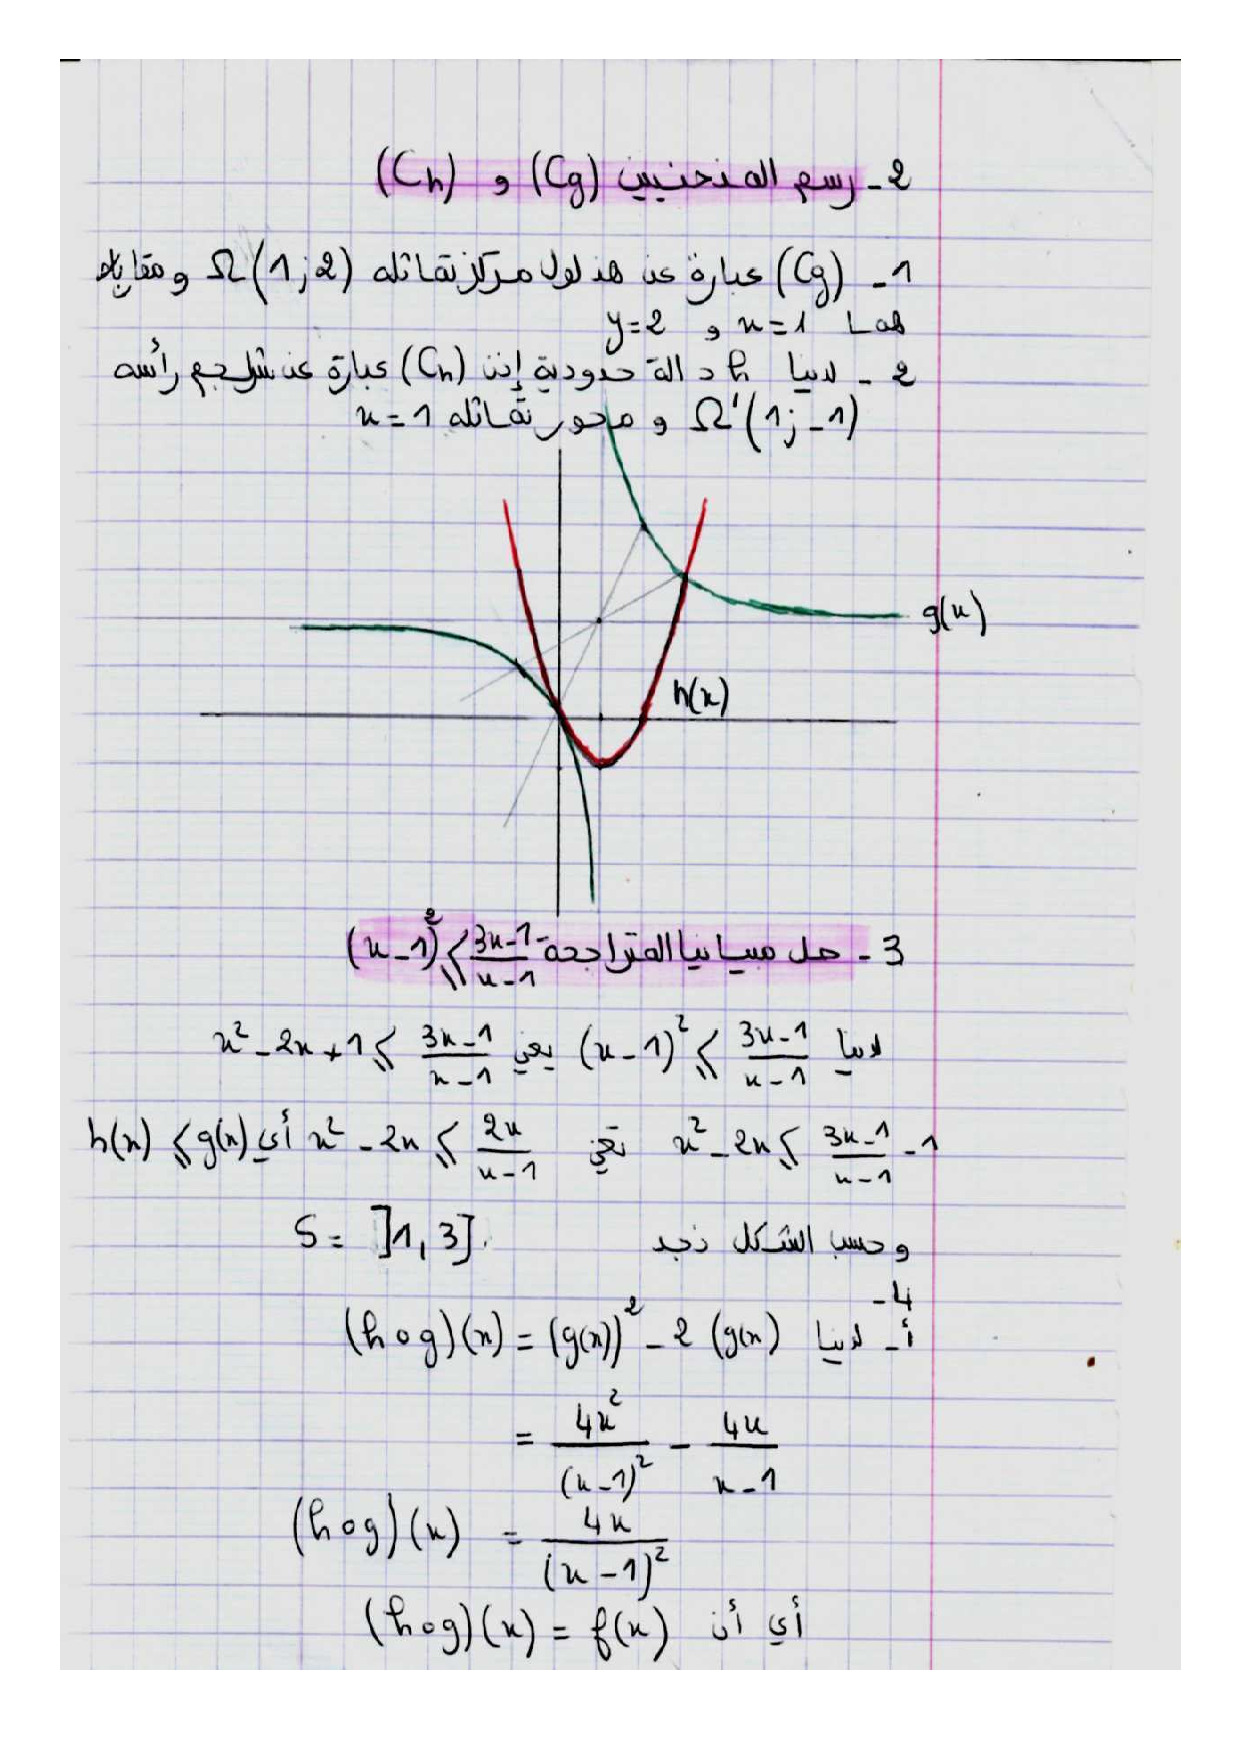 2- رسم المنحنيين (Cg) و (Ch)
1- (Cg) عبارة عن هذلول مركز تماثله Ω(1;2) و مقارباه
هما x=1 و y=2
2- لدينا h دالة حدودية إذن (Ch) عبارة عن شلجم رأسه
Ω'(1;-1) و محور تماثله x=1
g(x)
h(x)
3- حل مبيانيا المتراجحة (x-1)² ⩽ (3x-1)/(x-1)
لدينا (x-1)² ⩽ (3x-1)/(x-1) يعني x²-2x+1 ⩽ (3x-1)/(x-1)
x²-2x ⩽ (3x-1)/(x-1) -1 تعني x²-2x ⩽ 2x/(x-1) أي h(x) ⩽ g(x)
وحسب الشكل نجد S = ]1,3].
4-
أ- لدينا (hog)(x) = (g(x))² - 2(g(x)
= 4x²/(x-1)² - 4x/(x-1)
(hog)(x) = 4x/(x-1)²
أي أن (hog)(x) = f(x)